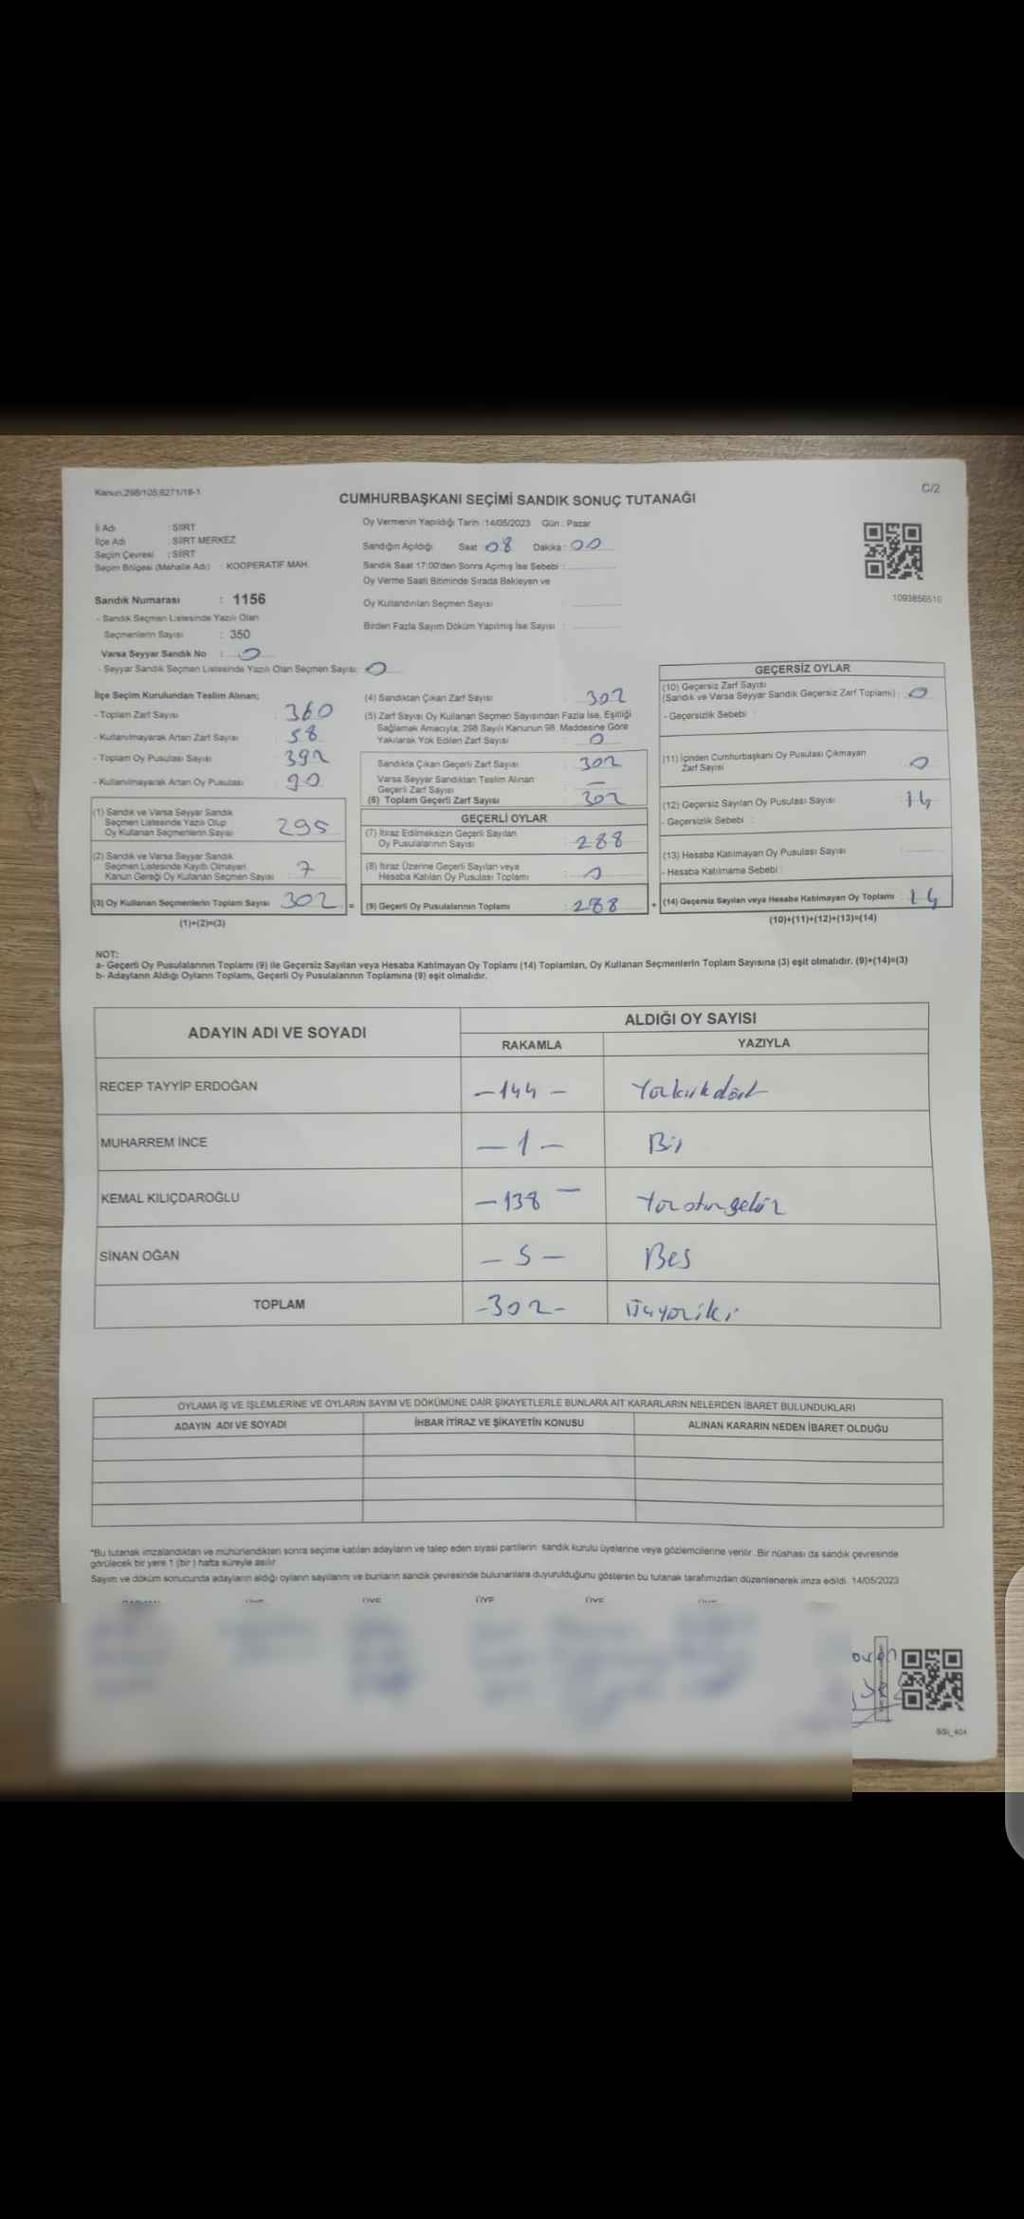 Kanun.298/105,6271/18-1
C/2
CUMHURBAŞKANI SEÇİMİ SANDIK SONUÇ TUTANAĞI
İl Adı : SİİRT
İlçe Adı : SİİRT MERKEZ
Seçim Çevresi : SİİRT
Seçim Bölgesi (Mahalle Adı) : KOOPERATİF MAH.
Oy Vermenin Yapıldığı Tarih :14/05/2023 Gün : Pazar
Sandığın Açıldığı Saat 08 Dakika : 00
Sandık Saat 17:00'den Sonra Açımış İse Sebebi :
Oy Verme Saati Bitiminde Sırada Bekleyen ve
Oy Kullandırılan Seçmen Sayısı :
Birden Fazla Sayım Döküm Yapılmış İse Sayısı :
1093856510
Sandık Numarası : 1156
- Sandık Seçmen Listesinde Yazılı Olan
Seçmenlerin Sayısı : 350
Varsa Seyyar Sandık No : 0
- Seyyar Sandık Seçmen Listesinde Yazılı Olan Seçmen Sayısı: 0
İlçe Seçim Kurulundan Teslim Alınan;
- Toplam Zarf Sayısı : 360
- Kullanılmayarak Artan Zarf Sayısı : 58
- Toplam Oy Pusulası Sayısı : 392
- Kullanılmayarak Artan Oy Pusulası : 90
(1) Sandık ve Varsa Seyyar Sandık
Seçmen Listesinde Yazılı Olup
Oy Kullanan Seçmenlerin Sayısı : 295
(2) Sandık ve Varsa Seyyar Sandık
Seçmen Listesinde Kayıtlı Olmayan
Kanun Gereği Oy Kullanan Seçmen Sayısı : 7
(3) Oy Kullanan Seçmenlerin Toplam Sayısı : 302 =
(1)+(2)=(3)
(4) Sandıktan Çıkan Zarf Sayısı : 302
(5) Zarf Sayısı Oy Kullanan Seçmen Sayısından Fazla İse, Eşitliği
Sağlamak Amacıyla; 298 Sayılı Kanunun 98. Maddesine Göre
Yakılarak Yok Edilen Zarf Sayısı : 0
Sandıkta Çıkan Geçerli Zarf Sayısı : 302
Varsa Seyyar Sandıktan Teslim Alınan
Geçerli Zarf Sayısı : —
(6) Toplam Geçerli Zarf Sayısı : 302
GEÇERLİ OYLAR
(7) İtiraz Edilmeksizin Geçerli Sayılan
Oy Pusulalarının Sayısı : 288
(8) İtiraz Üzerine Geçerli Sayılan veya
Hesaba Katılan Oy Pusulası Toplamı : 0
(9) Geçerli Oy Pusulalarının Toplamı : 288 +
GEÇERSİZ OYLAR
(10) Geçersiz Zarf Sayısı
(Sandık ve Varsa Seyyar Sandık Geçersiz Zarf Toplamı) : 0
- Geçersizlik Sebebi :
(11) İçinden Cumhurbaşkanı Oy Pusulası Çıkmayan
Zarf Sayısı : 0
(12) Geçersiz Sayılan Oy Pusulası Sayısı : 14
- Geçersizlik Sebebi :
(13) Hesaba Katılmayan Oy Pusulası Sayısı :
- Hesaba Katılmama Sebebi :
(14) Geçersiz Sayılan veya Hesaba Katılmayan Oy Toplamı : 14
(10)+(11)+(12)+(13)=(14)
NOT:
a- Geçerli Oy Pusulalarının Toplamı (9) ile Geçersiz Sayılan veya Hesaba Katılmayan Oy Toplamı (14) Toplamları, Oy Kullanan Seçmenlerin Toplam Sayısına (3) eşit olmalıdır. (9)+(14)=(3)
b- Adayların Aldığı Oyların Toplamı, Geçerli Oy Pusulalarının Toplamına (9) eşit olmalıdır.
ADAYIN ADI VE SOYADI
ALDIĞI OY SAYISI
RAKAMLA YAZIYLA
RECEP TAYYİP ERDOĞAN -144- Yüzkırkdört
MUHARREM İNCE -1- Bir
KEMAL KILIÇDAROĞLU -138-
SİNAN OĞAN -5- Beş
TOPLAM -302- Üçyüziki
OYLAMA İŞ VE İŞLEMLERİNE VE OYLARIN SAYIM VE DÖKÜMÜNE DAİR ŞİKAYETLERLE BUNLARA AİT KARARLARIN NELERDEN İBARET BULUNDUKLARI
ADAYIN ADI VE SOYADI İHBAR İTİRAZ VE ŞİKAYETİN KONUSU ALINAN KARARIN NEDEN İBARET OLDUĞU
*Bu tutanak imzalandıktan ve mühürlendikten sonra seçime katılan adayların ve talep eden siyasi partilerin sandık kurulu üyelerine veya gözlemcilerine verilir. Bir nüshası da sandık çevresinde
görülecek bir yere 1 (bir ) hafta süreyle asılır.
Sayım ve döküm sonucunda adayların aldığı oyların sayılarını ve bunların sandık çevresinde bulunanlara duyurulduğunu gösteren bu tutanak tarafımızdan düzenlenerek imza edildi. 14/05/2023
ÜYE ÜYE ÜYE